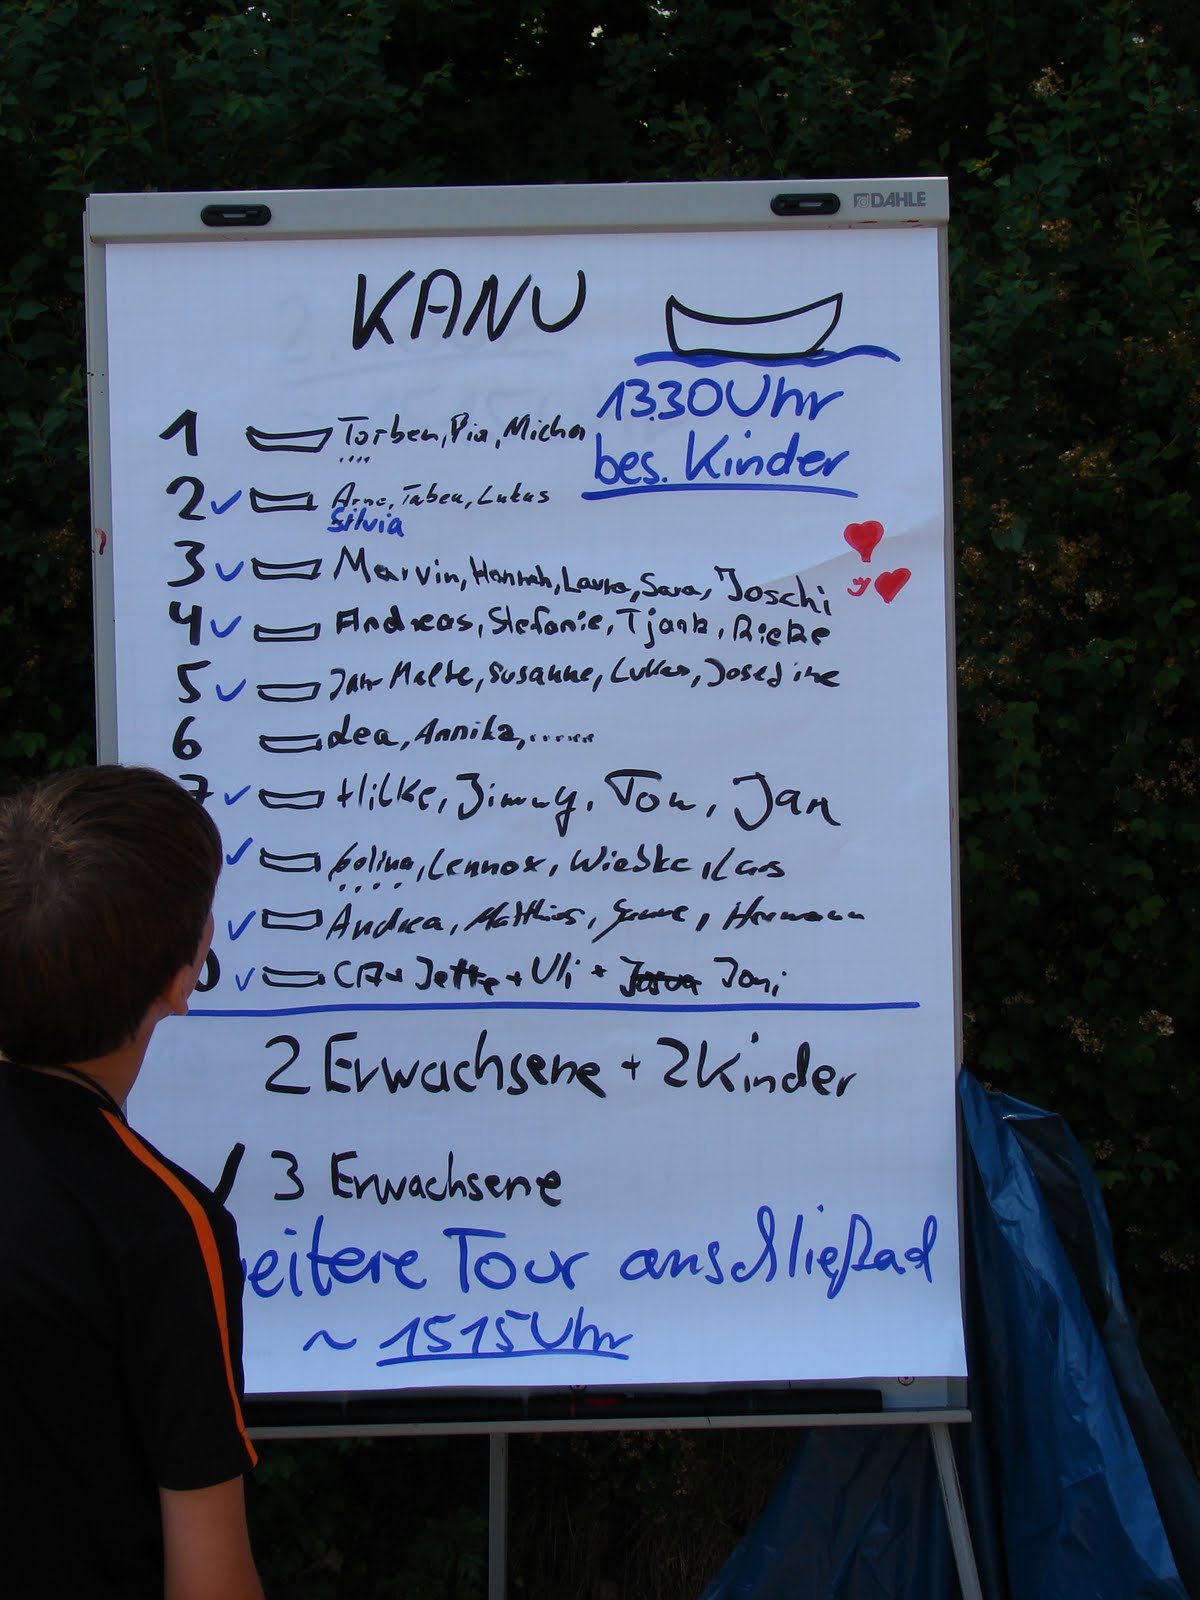 DAHLE
KANU
13.30 Uhr
bes. Kinder
1 Torben, Pia, Micha
2 ✓ Arne, Taben, Lukas
Silvia
3 ✓ Marvin, Hannah, Laura, Sara, Joschi
4 ✓ Andreas, Stefanie, Tjark, Rieke
5 ✓ Jan-Malte, Susanne, Lukas, Josefine
6 Lea, Annika, ......
7 ✓ Hilke, Jimmy, Tom, Jan
✓ Lennox, Wiebke, Lars
✓ Andrea, Matthias, Hermann
0 ✓ Jette + Uli + Joni
2 Erwachsene + 2 Kinder
/ 3 Erwachsene
eitere Tour anschließad
~ 1515 Uhr